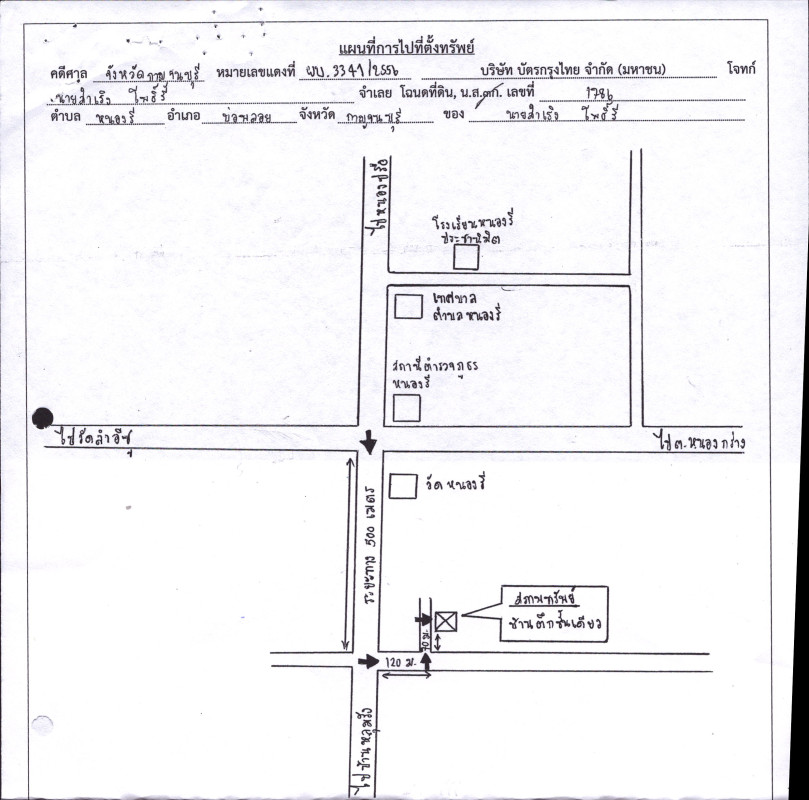 แผนที่การไปที่ตั้งทรัพย์
คดีศาล จังหวัดกาญจนบุรี หมายเลขแดงที่ ผบ. 3341/2556 บริษัท บัตรกรุงไทย จำกัด (มหาชน) โจทก์
นายสำเริง โพธิ์รี จำเลย โฉนดที่ดิน, น.ส.๓ก. เลขที่ 1786
ตำบล หนองรี อำเภอ บ่อพลอย จังหวัด กาญจนบุรี ของ นายสำเริง โพธิ์รี
ไปหนองปรือ
โรงเรียนหนองรี
ประชานิมิต
เทศบาล
ตำบลหนองรี
สถานีตำรวจภูธร
หนองรี
ไปวัดลำอีซู
ไปต.หนองกร่าง
วัดหนองรี
ระยะทาง 500 เมตร
สภาพทรัพย์
บ้านตึกชั้นเดียว
70 ม.
120 ม.
ไปบ้านหลุมรัง